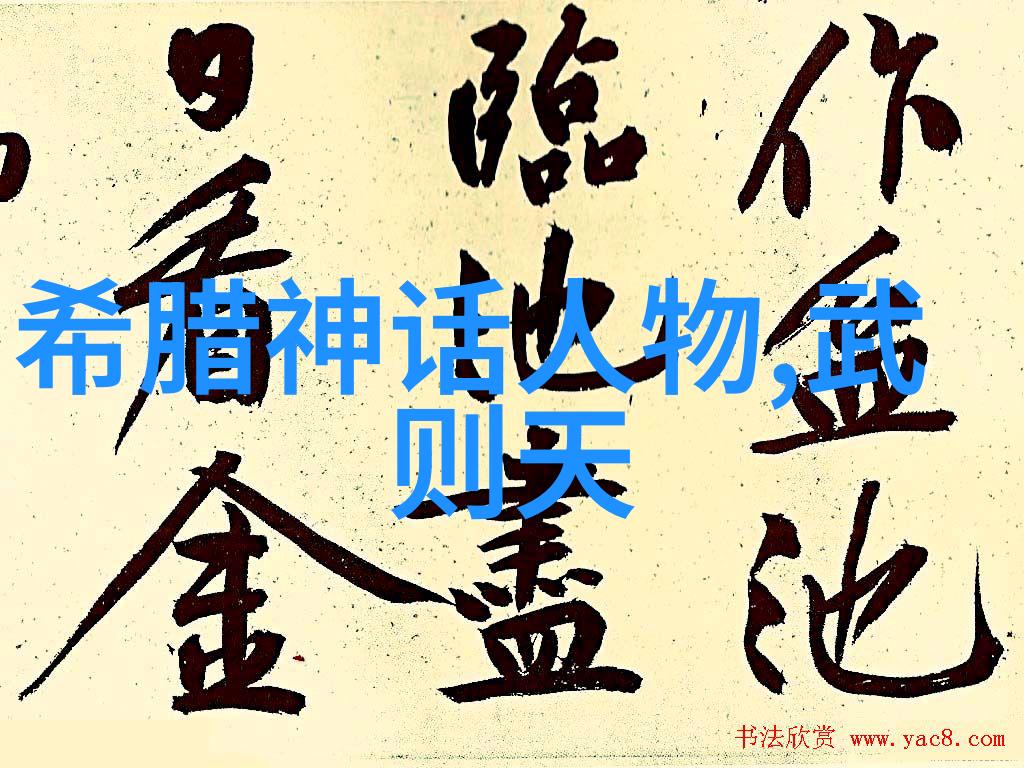 作盆池
臨地盡
日看金
希腊神话人物,武
则天
书法欣赏 www.yac8.com